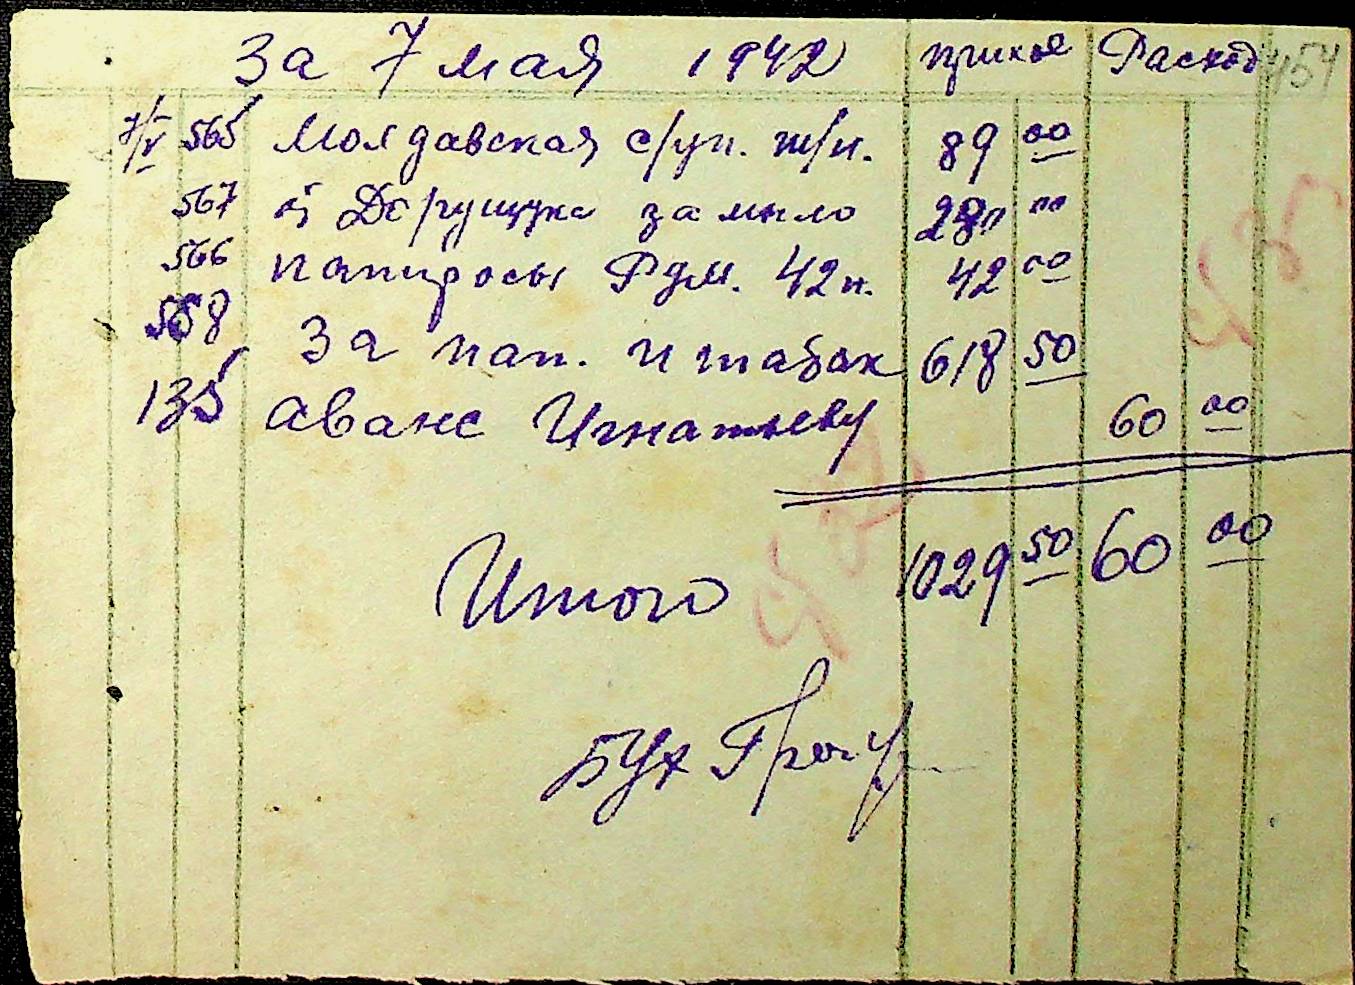 За 7 мая 1942 приход Расход 454
7/V 565 Молдавская с/уп. ж/п. 89 00
567 за мыло 280 00
566 папиросы Рум. 42п. 42 00
568 За пап. и табак 618 50
135 аванс Игнатьеву 60 00
Итого 1029 50 60 00
Бух